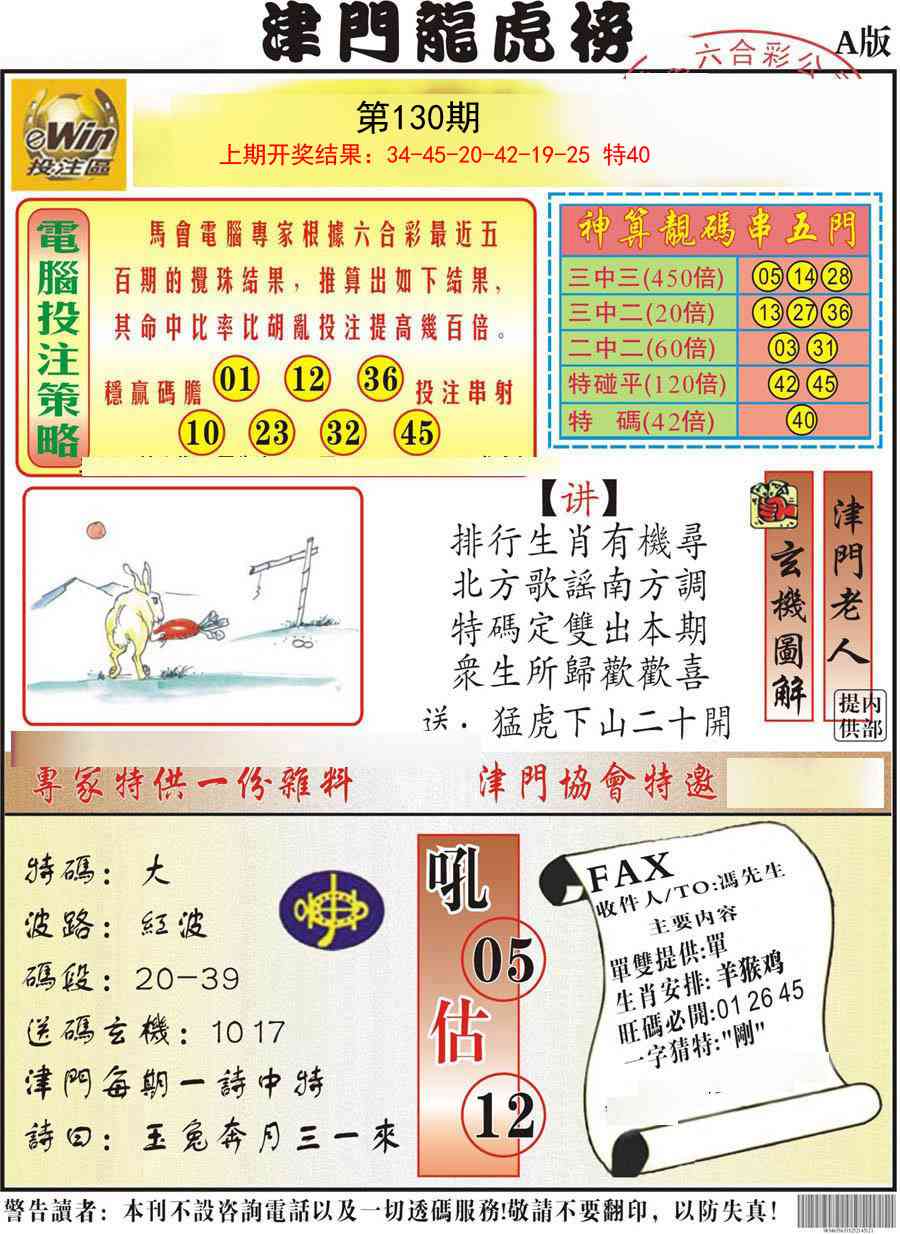 津門龍虎榜
A版
六合彩公
eWin
投注區
第130期
上期开奖结果：34-45-20-42-19-25 特40
電腦投注策略
馬會電腦專家根據六合彩最近五
百期的攪珠結果，推算出如下結果，
其命中比率比胡亂投注提高幾百倍。
穩贏碼膽 01 12 36 投注串射
10 23 32 45
神算靚碼串五門
三中三(450倍) 05 14 28
三中二(20倍) 13 27 36
二中二(60倍) 03 31
特碰平(120倍) 42 45
特　碼(42倍) 40
【讲】
排行生肖有機尋
北方歌謠南方調
特碼定雙出本期
衆生所歸歡歡喜
送·猛虎下山二十開
玄機圖解
津門老人
内部提供
專家特供一份雜料
津門協會特邀
特碼：大
波路：紅波
碼段：20-39
送碼玄機：10 17
津門每期一詩中特
詩曰：玉兔奔月三一來
吼
05
估
12
FAX
收件人/TO:馮先生
主要内容
單雙提供:單
生肖安排:羊猴鸡
旺碼必開:01 26 45
一字猜特:"剛"
警告讀者：本刊不設咨詢電話以及一切透碼服務!敬請不要翻印，以防失真！